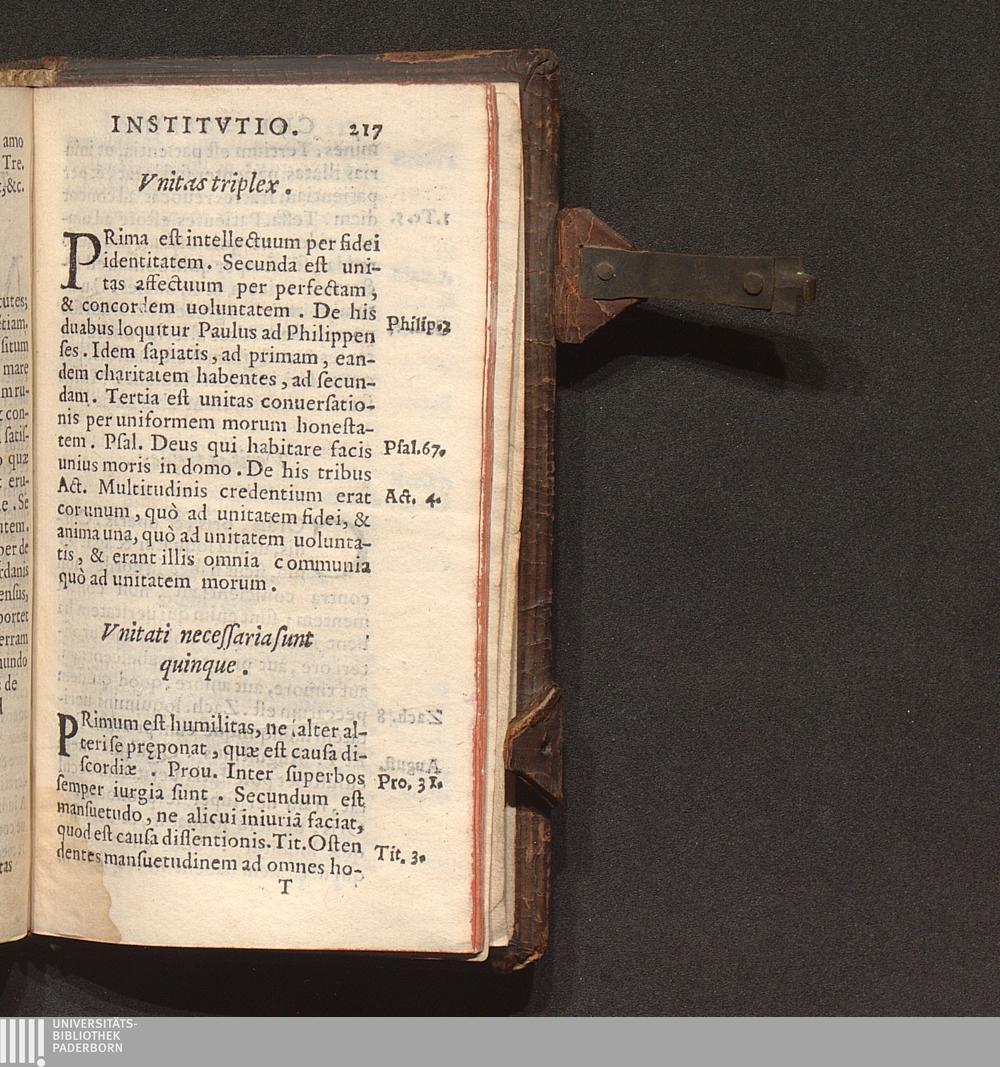 INSTITVTIO. 217
Vnitas triplex.
PRima eſt intellectuum per fidei
identitatem. Secunda eſt uni-
tas affectuum per perfectam,
& concordem uoluntatem. De his
duabus loquitur Paulus ad Philippen
Philip.2
ſes. Idem ſapiatis, ad primam, ean-
dem charitatem habentes, ad ſecun-
dam. Tertia eſt unitas conuerſatio-
nis per uniformem morum honeſta-
tem. Pſal. Deus qui habitare facis
Pſal.67.
unius moris in domo. De his tribus
Act. Multitudinis credentium erat
Act. 4.
cor unum, quò ad unitatem fidei, &
anima una, quò ad unitatem uolunta-
tis, & erant illis omnia communia
quò ad unitatem morum.
Vnitati neceſſaria ſunt
quinque.
PRimum eſt humilitas, ne alter al-
teri ſe pręponat, quæ eſt cauſa di-
ſcordiæ. Prou. Inter ſuperbos
Pro. 31.
ſemper iurgia ſunt. Secundum eſt
manſuetudo, ne alicui iniuriā faciat,
quod eſt cauſa diſſentionis. Tit. Oſten
Tit. 3.
dentes manſuetudinem ad omnes ho-
T
amo
Tre.
&c.
tutes;
etiam.
ſitum
mare
m ru-
con-
ſatiſ-
quæ
eru-
e. Se
item.
per de
rdanis
enſus,
portet
erram
mundo
de
tas
UNIVERSITÄTS-
BIBLIOTHEK
PADERBORN